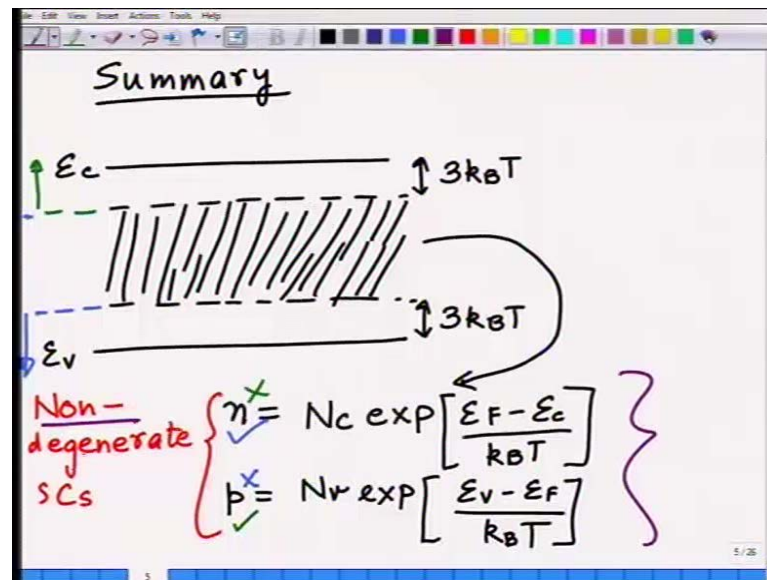 File Edit View Insert Actions Tools Help
Summary
εc
3kBT
3kBT
εv
Non-
degenerate
SCs
n = Nc exp[εF - εc / kBT]
p = Nv exp[εv - εF / kBT]
5/26
5